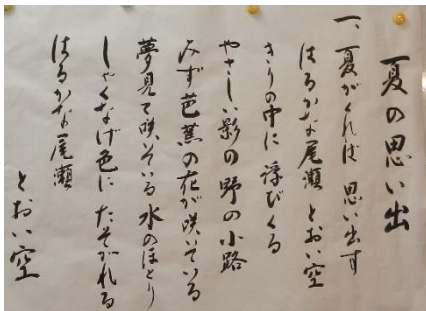 夏の思い出
一、夏がくれば 思い出す
はるかな尾瀬 とおい空
きりの中に 浮びくる
やさしい影の 野の小路
みず芭蕉の花が 咲いている
夢見て咲いている 水のほとり
しゃくなげ色に たそがれる
はるかな尾瀬
とおい空